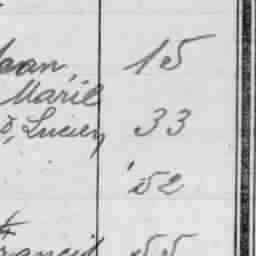 Jean, 15
Marie
D, Lucien, 33
52
Francis 55